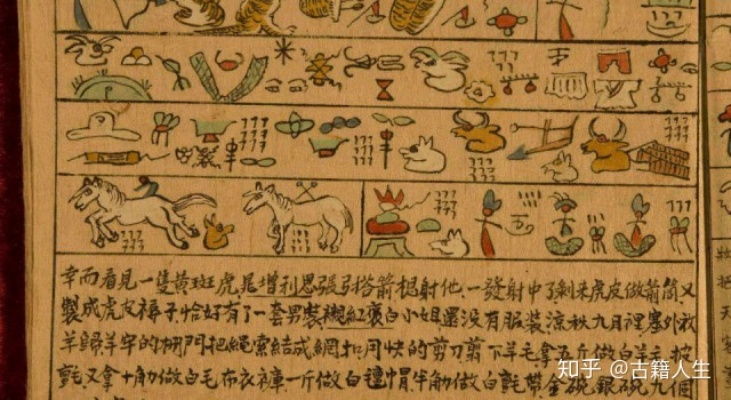 幸而看見一隻黄斑虎，昆增利恩張弓搭箭想射他，一發射中了剝来虎皮做箭筒又
製成虎皮褲子，恰好有了一套男裝，襯紅褒白小姐還没有服装，涼秋九月裡塞外牧
羊歸羊牢的柵門把繩索結成網扣用快的剪刀剪下羊毛拿 斤做白羊毛披
氈又拿十觔做白毛布衣褲一斤做白氊帽半觔做白氈 金碗銀碗九個
知乎 @古籍人生